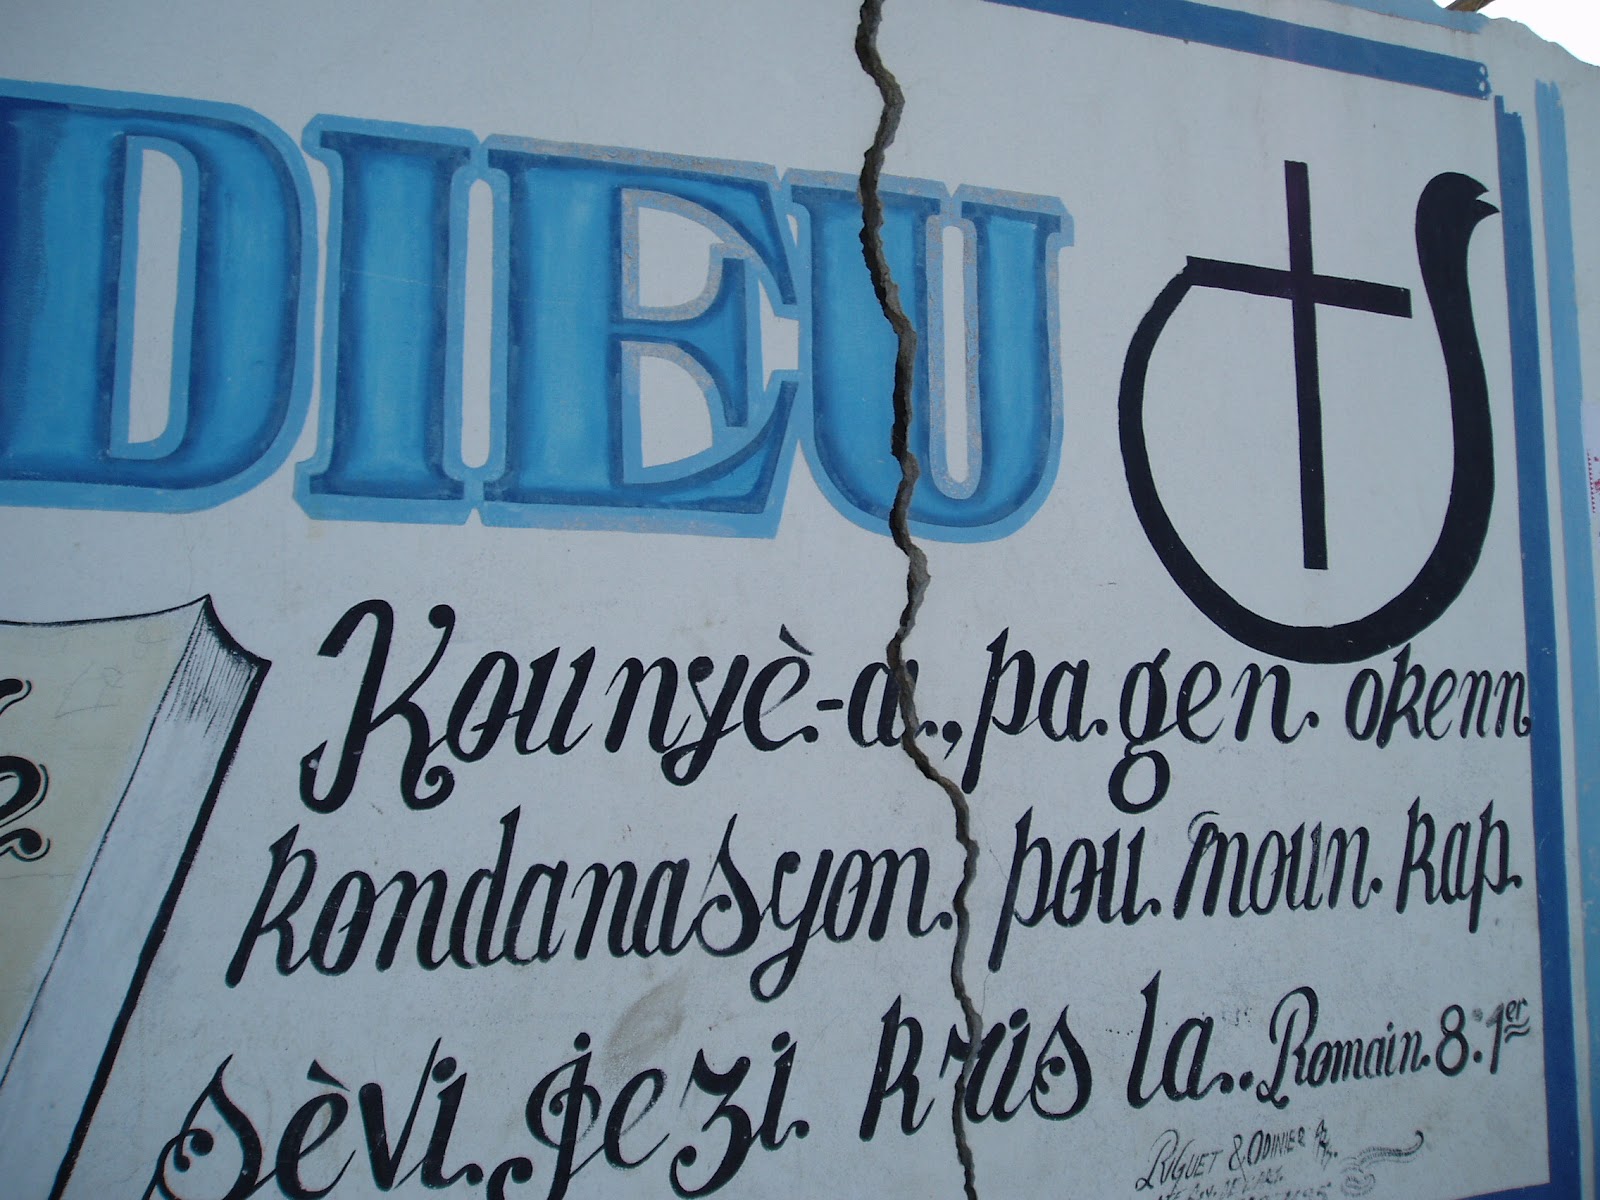 DIEU
Kounyè-a, pa gen okenn
kondanasyon pou moun kap
sèvi jezi kris la.. Romain 8:1er
RIGUET & ODINIER